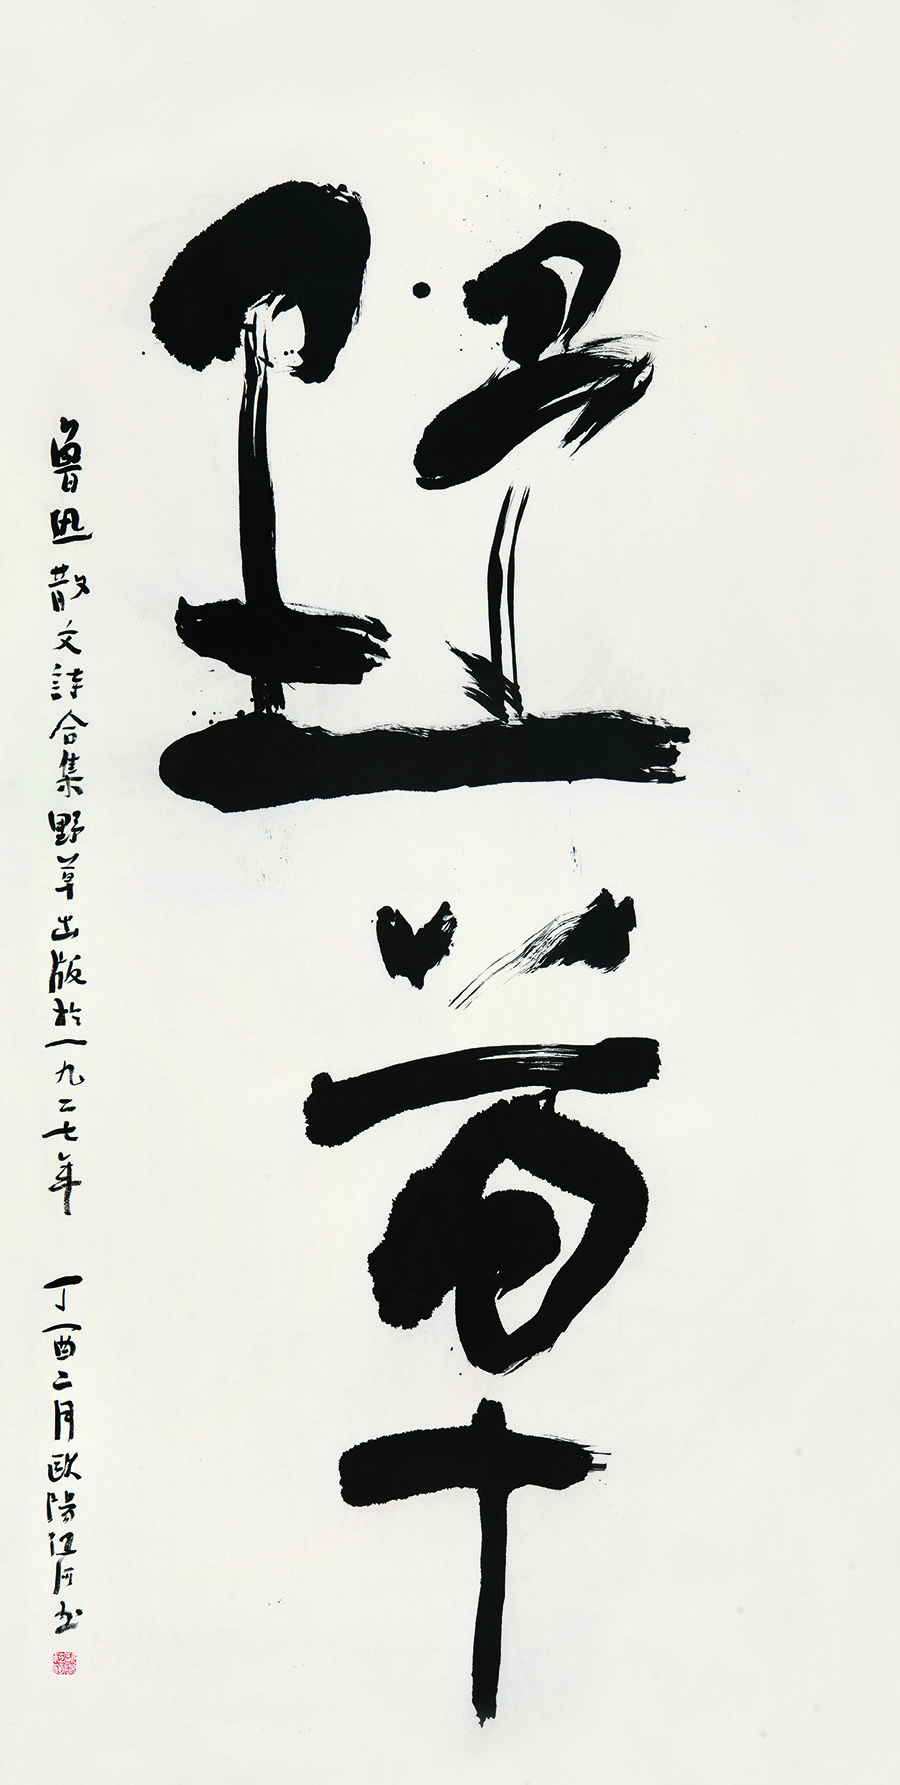 野草
魯迅散文詩合集野草出版於一九二七年 丁酉二月歐陽江河書